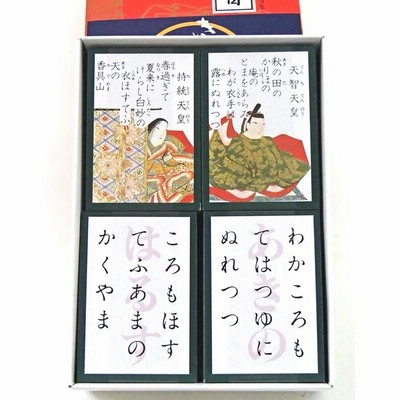 天智天皇
秋の田の
かりほの
庵の
とまをあらみ
わが衣手は
露にぬれつつ
持統天皇
春過ぎて
夏来に
けらし白妙の
衣ほすてふ
天の
香具山
わかころも
てはつゆに
ぬれつつ
あきの
ころもほす
てふあまの
かくやま
はるす